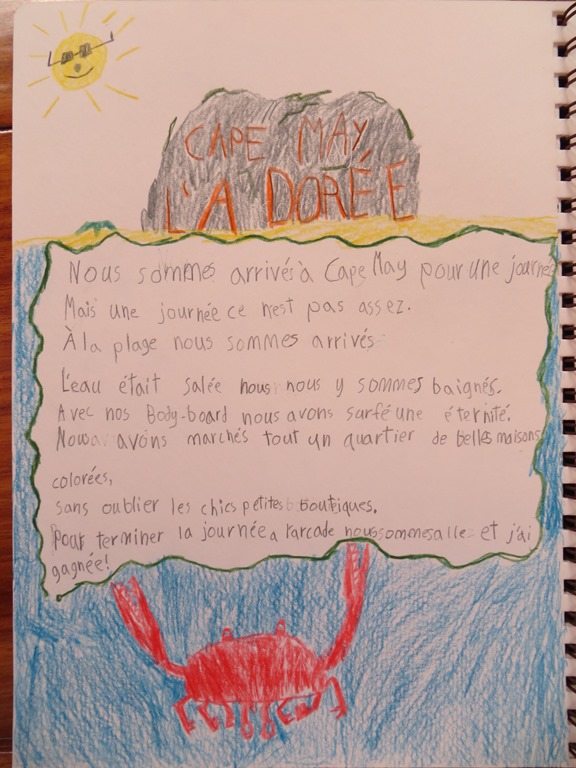 CAPE MAY
L'A DORÉE
Nous sommes arrivés à Cape May pour une journée
Mais une journée ce n'est pas assez.
À la plage nous sommes arrivés
L'eau était salée nous nous y sommes baignés.
Avec nos Body-board nous avons surfé une éternité.
avons marchés tout un quartier de belles maisons
colorées,
sans oublier les chics petites boutiques.
Pour terminer la journée a l'arcade nous sommes alle et j'ai
gagnée!